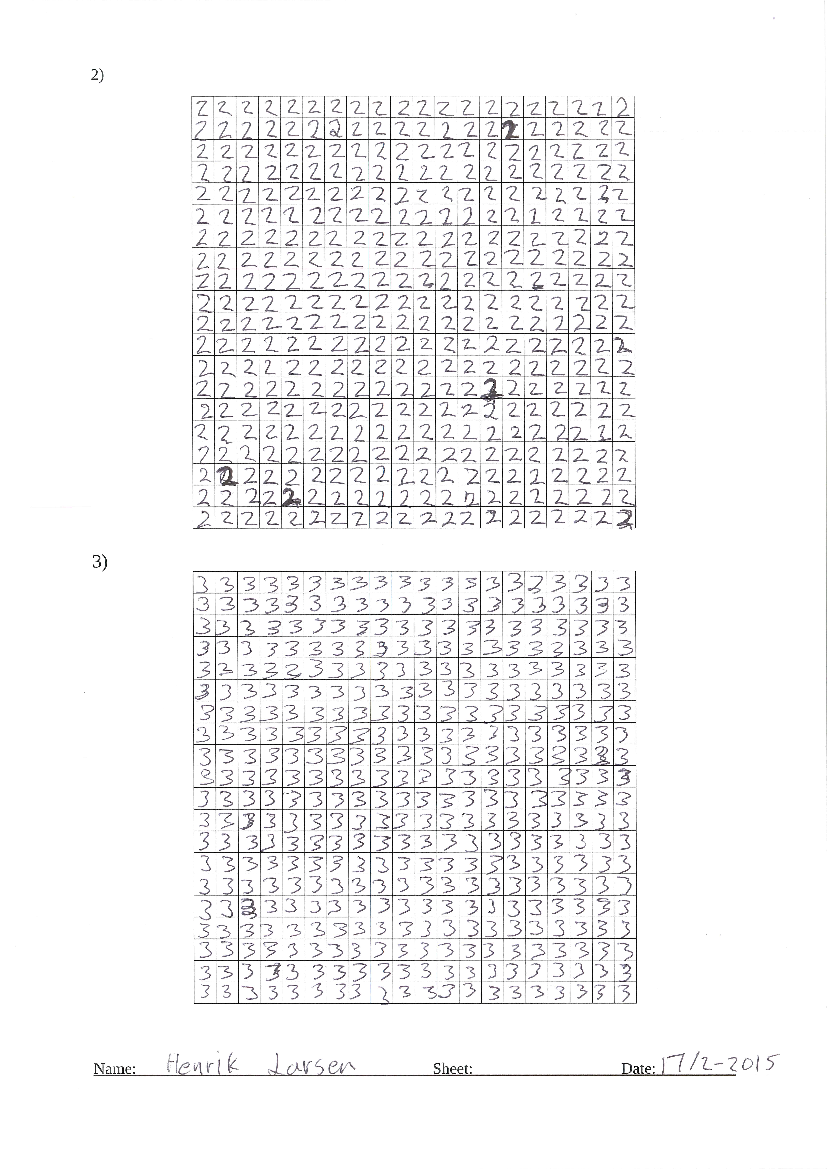 2)
2 2 2 2 2 2 2 2 2 2 2 2 2 2 2 2 2 2 2 2
2 2 2 2 2 2 2 2 2 2 2 2 2 2 2 2 2 2 2 2
2 2 2 2 2 2 2 2 2 2 2 2 2 2 2 2 2 2 2 2
2 2 2 2 2 2 2 2 2 2 2 2 2 2 2 2 2 2 2 2
2 2 2 2 2 2 2 2 2 2 2 2 2 2 2 2 2 2 2 2
2 2 2 2 2 2 2 2 2 2 2 2 2 2 2 2 2 2 2 2
2 2 2 2 2 2 2 2 2 2 2 2 2 2 2 2 2 2 2 2
2 2 2 2 2 2 2 2 2 2 2 2 2 2 2 2 2 2 2 2
2 2 2 2 2 2 2 2 2 2 2 2 2 2 2 2 2 2 2 2
2 2 2 2 2 2 2 2 2 2 2 2 2 2 2 2 2 2 2 2
2 2 2 2 2 2 2 2 2 2 2 2 2 2 2 2 2 2 2 2
2 2 2 2 2 2 2 2 2 2 2 2 2 2 2 2 2 2 2 2
2 2 2 2 2 2 2 2 2 2 2 2 2 2 2 2 2 2 2 2
2 2 2 2 2 2 2 2 2 2 2 2 2 2 2 2 2 2 2 2
2 2 2 2 2 2 2 2 2 2 2 2 2 2 2 2 2 2 2 2
2 2 2 2 2 2 2 2 2 2 2 2 2 2 2 2 2 2 2 2
2 2 2 2 2 2 2 2 2 2 2 2 2 2 2 2 2 2 2 2
2 2 2 2 2 2 2 2 2 2 2 2 2 2 2 2 2 2 2 2
2 2 2 2 2 2 2 2 2 2 2 2 2 2 2 2 2 2 2 2
2 2 2 2 2 2 2 2 2 2 2 2 2 2 2 2 2 2 2 2
3)
3 3 3 3 3 3 3 3 3 3 3 3 3 3 3 3 3 3 3 3
3 3 3 3 3 3 3 3 3 3 3 3 3 3 3 3 3 3 3 3
3 3 3 3 3 3 3 3 3 3 3 3 3 3 3 3 3 3 3 3
3 3 3 3 3 3 3 3 3 3 3 3 3 3 3 3 3 3 3 3
3 3 3 3 3 3 3 3 3 3 3 3 3 3 3 3 3 3 3 3
3 3 3 3 3 3 3 3 3 3 3 3 3 3 3 3 3 3 3 3
3 3 3 3 3 3 3 3 3 3 3 3 3 3 3 3 3 3 3 3
3 3 3 3 3 3 3 3 3 3 3 3 3 3 3 3 3 3 3 3
3 3 3 3 3 3 3 3 3 3 3 3 3 3 3 3 3 3 3 3
3 3 3 3 3 3 3 3 3 3 3 3 3 3 3 3 3 3 3 3
3 3 3 3 3 3 3 3 3 3 3 3 3 3 3 3 3 3 3 3
3 3 3 3 3 3 3 3 3 3 3 3 3 3 3 3 3 3 3 3
3 3 3 3 3 3 3 3 3 3 3 3 3 3 3 3 3 3 3 3
3 3 3 3 3 3 3 3 3 3 3 3 3 3 3 3 3 3 3 3
3 3 3 3 3 3 3 3 3 3 3 3 3 3 3 3 3 3 3 3
3 3 3 3 3 3 3 3 3 3 3 3 3 3 3 3 3 3 3 3
3 3 3 3 3 3 3 3 3 3 3 3 3 3 3 3 3 3 3 3
3 3 3 3 3 3 3 3 3 3 3 3 3 3 3 3 3 3 3 3
3 3 3 3 3 3 3 3 3 3 3 3 3 3 3 3 3 3 3 3
3 3 3 3 3 3 3 3 3 3 3 3 3 3 3 3 3 3 3 3
Name: Henrik Larsen Sheet: Date: 17/2-2015